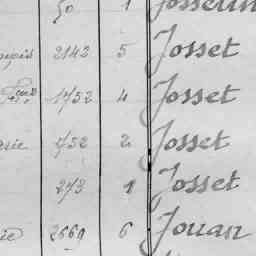 50 1 Josselin
2142 5 Josset
1752 4 Josset
752 2 Josset
273 1 Josset
2669 6 Jouan